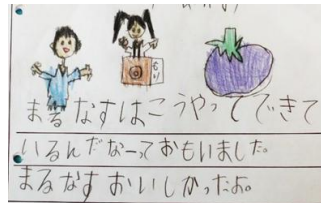 まるなすはこうやってできて
いるんだなーっておもいました。
まるなすおいしかったよ。